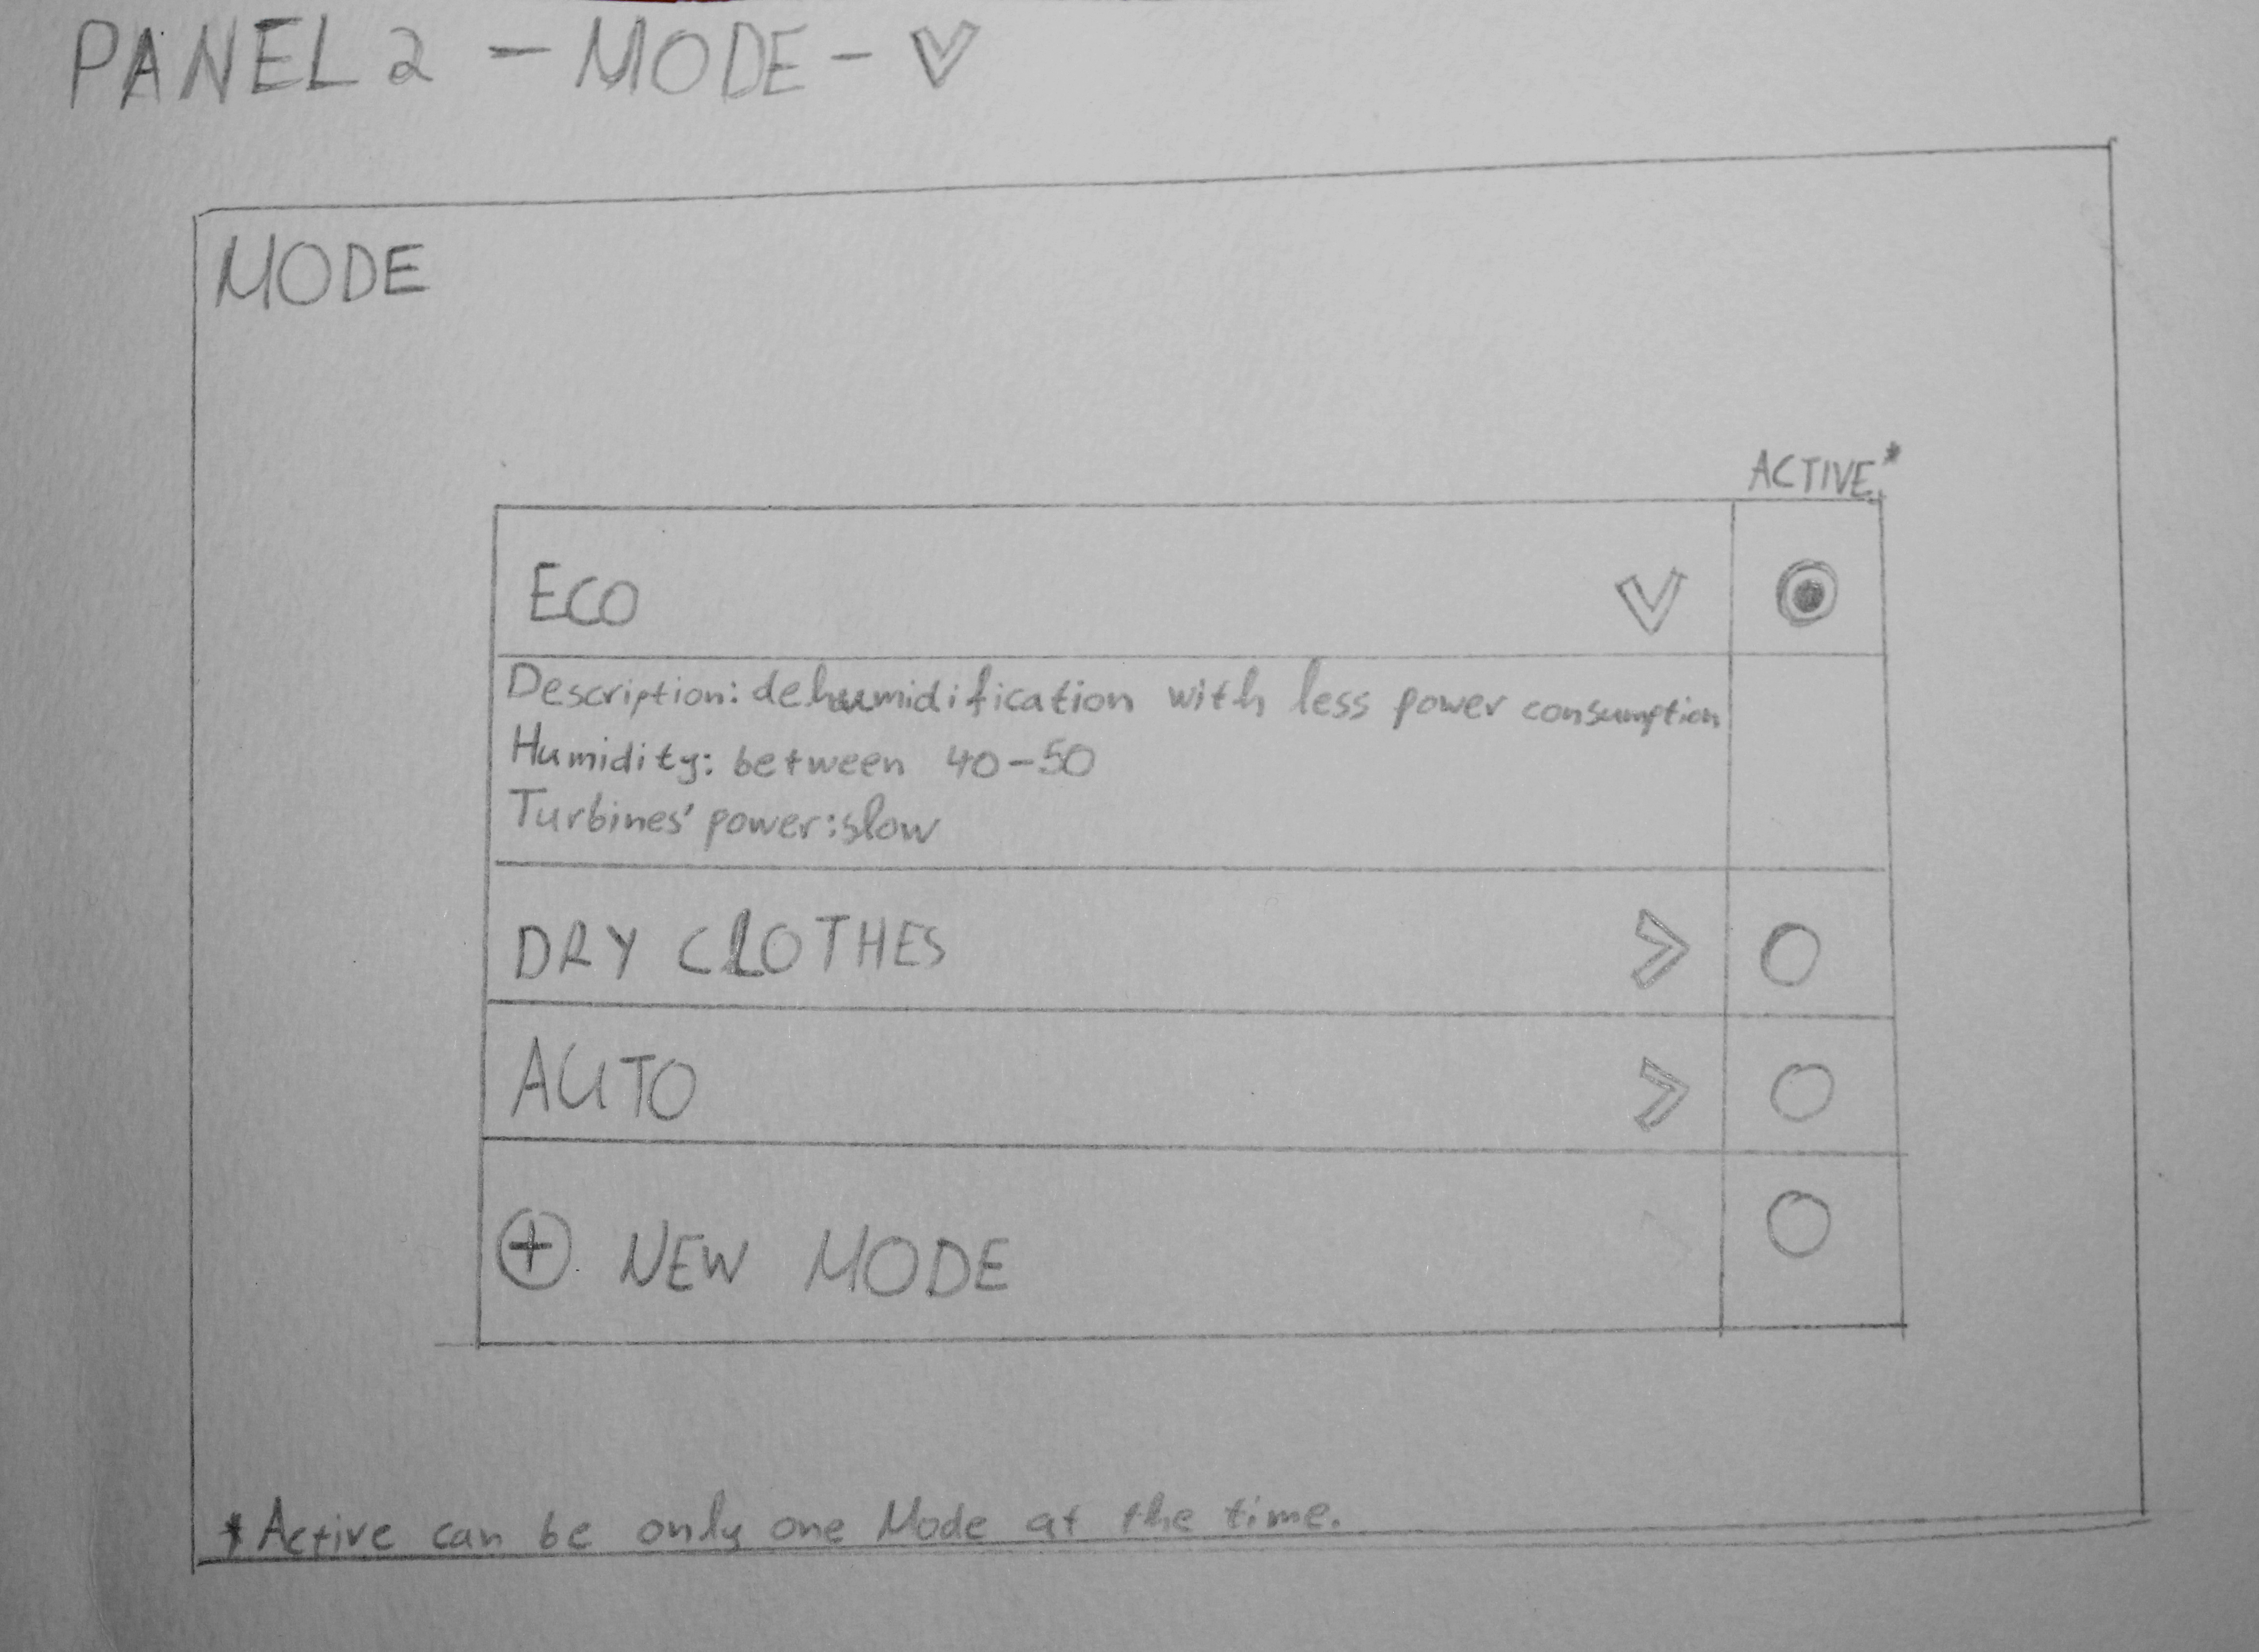 PANEL 2 - MODE - V
MODE
ACTIVE*
ECO
Description: dehumidification with less power consumption
Humidity: between 40-50
Turbines' power: slow
DRY CLOTHES
AUTO
+ NEW MODE
*Active can be only one Mode at the time.